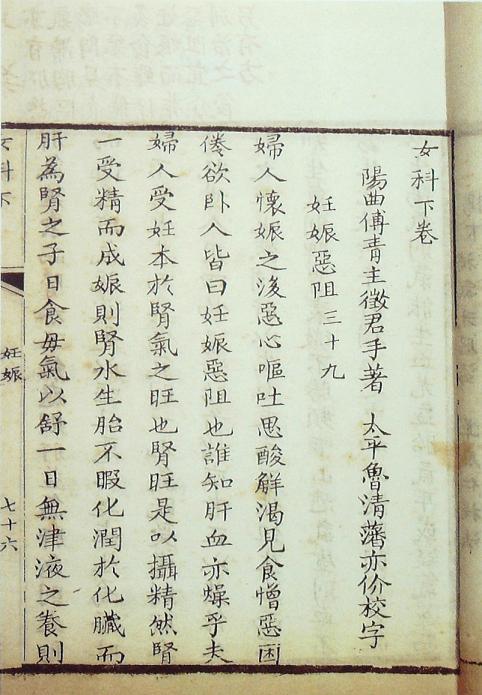 女科下卷
陽曲傅青主徵君手著 太平魯清藩亦价校字
妊娠惡阻三十九
婦人懷娠之後惡心嘔吐思酸解渴見食憎惡困
倦欲卧人皆曰妊娠惡阻也誰知肝血亦燥乎夫
婦人受妊本於腎氣之旺也腎旺是以攝精然腎
一受精而成娠則腎水生胎不暇化潤於化臟而
肝為腎之子日食毋氣以舒一日無津液之養則
女科下
妊娠
七十六